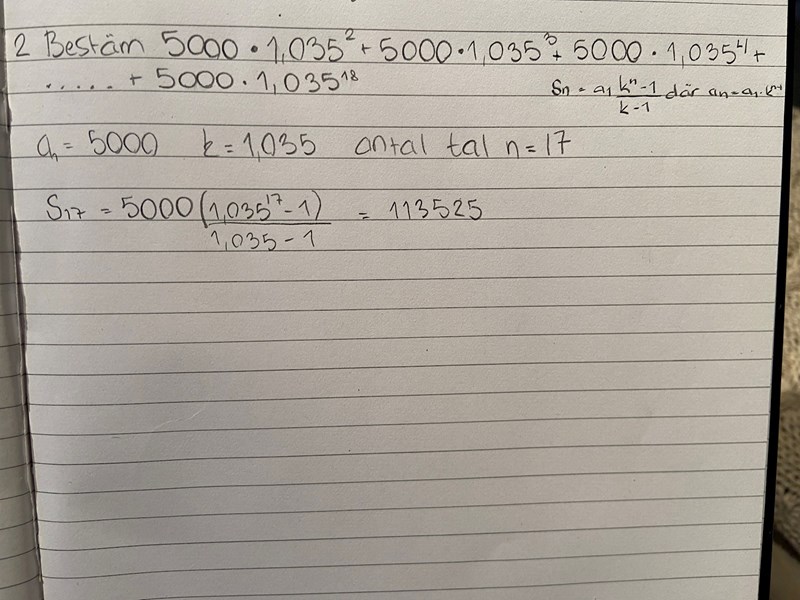 2 Bestäm 5000 · 1,035² + 5000 · 1,035³ + 5000 · 1,035⁴ +
..... + 5000 · 1,035¹⁸
Sn = a₁ kⁿ-1 / k-1 där an = a₁ · kⁿ⁻¹
a₁ = 5000 k = 1,035 antal tal n = 17
S₁₇ = 5000 (1,035¹⁷ - 1) / 1,035 - 1 = 113525